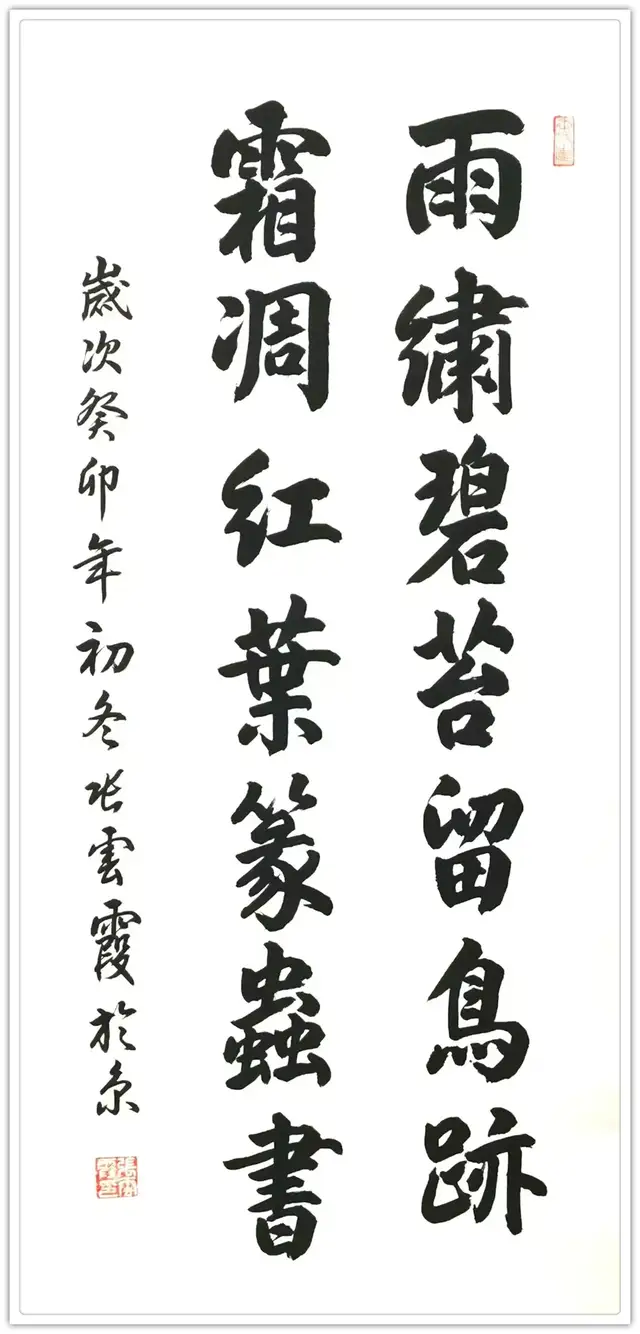 雨繡碧苔留鳥跡
霜凋紅葉篆蟲書
歲次癸卯年初冬張雲霞於京